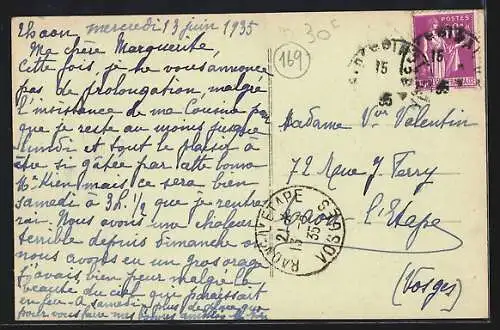 mercredi 13 juin 1935
Ma chère Marguerite,
Cette fois, je ne vous annonce
pas de prolongation, malgré
l'insistance de ma Cousine pour
que je reste au moins jusque
lundi et tout le plaisir
être si gâtée par cette bonne
mais ce sera bien
samedi à 3h. 1/2 que je rentre-
rai. Nous avons une chaleur
terrible depuis dimanche où
nous avons eu un gros orage
j'avais bien peur malgré la
beauté du ciel que paraissait
en feu. À samedi, plus de
pour vous faire mes bonnes amitiés
30c
169
POSTES
15
35
Madame Vve Valentin
72 Rue J. Ferry
Raon l'Etape
(Vosges)
RAON-L'ETAPE
VOSGES
35